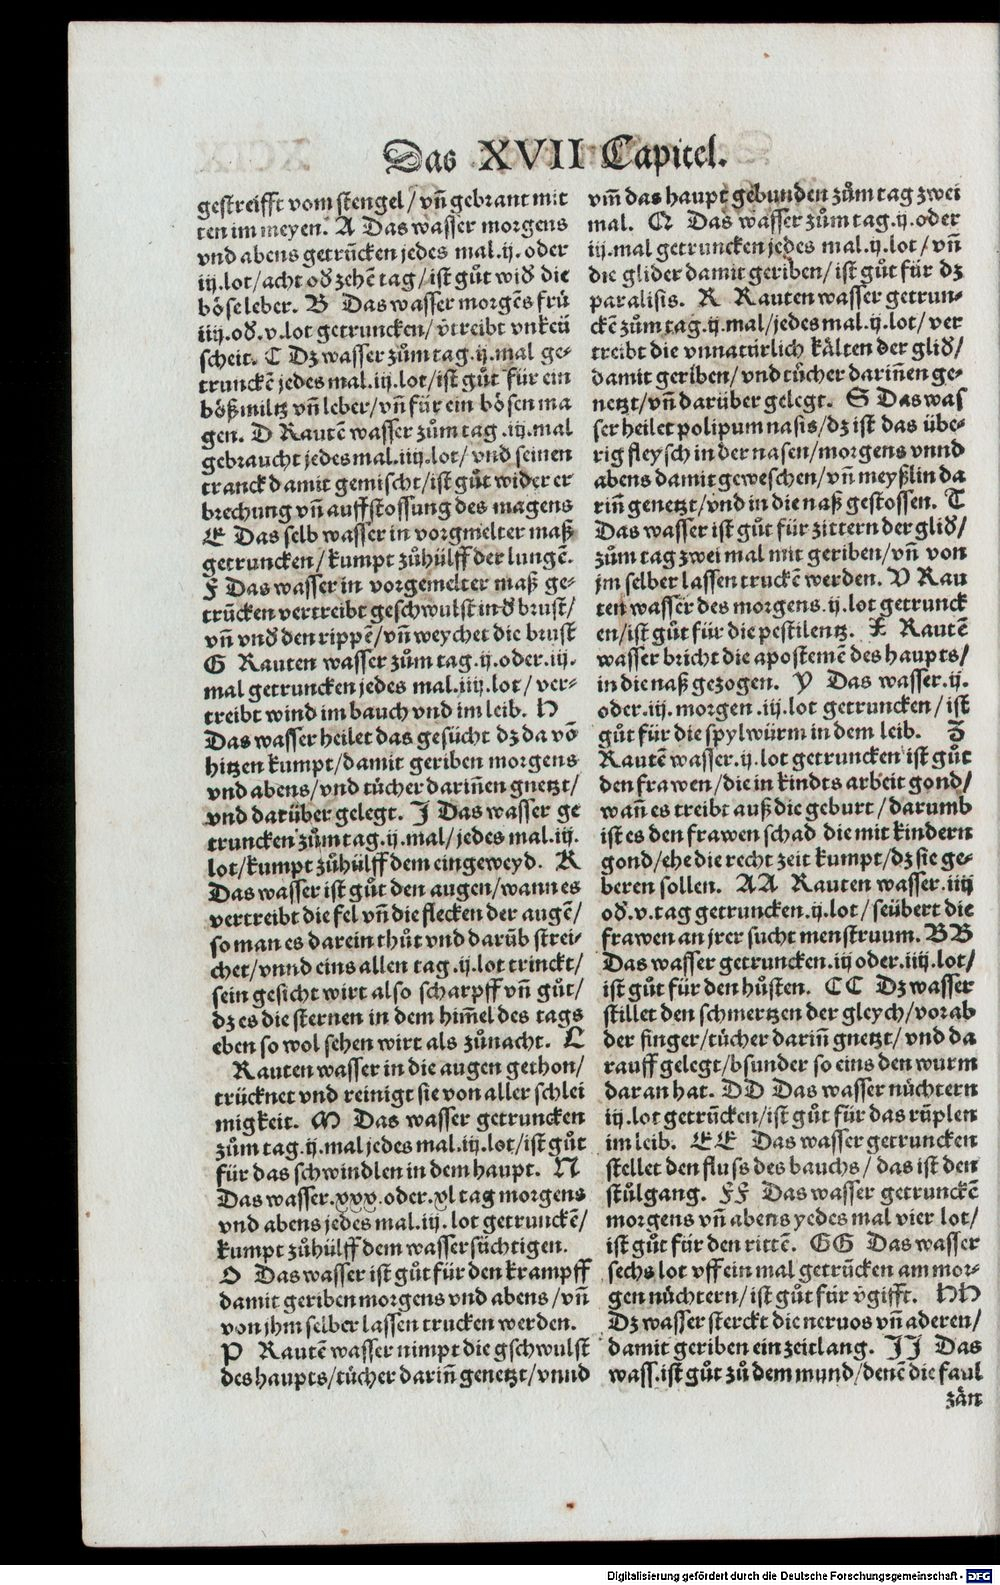 Das XVII Capitel.
gestreifft vom stengel / vñ gebrant mit
ten im meyen. A Das wasser morgens
vnd abens getrũcken jedes mal.ij. oder
iij.lot/acht oď zehẽ tag/ist gůt wiď die
böse leber. B Das wasser morgẽs frü
iiij.oď.v.lot getruncken/ v̄treibt vnkeü
scheit. C Dz wasser zům tag.ij.mal ge-
trunckẽ jedes mal.iij.lot/ist gůt für ein
böß miltz vñ leber/vñ für ein bösen ma
gen. D Rautẽ wasser zům tag.iij.mal
gebraucht jedes mal.iiij.lot/ vnd seinen
tranck damit gemischt/ist gůt wider er
brechung vñ auffstossung des magens
E Das selb wasser in vorgmelter maß
getruncken/kumpt zůhülff der lungẽ.
F Das wasser in vorgemelter maß ge-
trũcken vertreibt geschwulst in ď brust/
vñ vnď den rippẽ/vñ weychet die brust
G Rauten wasser zům tag.ij.oder.iij.
mal getruncken jedes mal.iiij.lot / ver-
treibt wind im bauch vnd im leib. H
Das wasser heilet das gesücht dz da võ
hitzen kumpt/damit geriben morgens
vnd abens/vnd tücher dariñen gnetzt/
vnd darüber gelegt. J Das wasser ge
truncken zům tag.ij.mal/jedes mal.iij.
lot/kumpt zůhülff dem eingeweyd. K
Das wasser ist gůt den augen/wann es
vertreibt die fel vñ die flecken der augẽ/
so man es darein thůt vnd darüb strei-
chet/vnnd eins allen tag.ij.lot trinckt/
sein gesicht wirt also scharpff vñ gůt/
dz es die sternen in dem him̃el des tags
eben so wol sehen wirt als zůnacht. L
Rauten wasser in die augen gethon/
trücknet vnd reinigt sie von aller schlei
migkeit. M Das wasser getruncken
zům tag.ij.mal jedes mal.iij.lot/ist gůt
für das schwindlen in dem haupt. N
Das wasser.xxx.oder.xl tag morgens
vnd abens jedes mal.iij.lot getrunckẽ/
kumpt zůhülff dem wassersüchtigen.
O Das wasser ist gůt für den krampff
damit geriben morgens vnd abens /vñ
von jhm selber lassen trucken werden.
P Rautẽ wasser nimpt die gschwulst
des haupts/tücher dariñ genetzt/vnnd
vm̃ das haupt gebunden zům tag zwei
mal. Q Das wasser zům tag.ij.oder
iij.mal getruncken jedes mal.ij.lot/ vñ
die glider damit geriben/ ist gůt für dz
paralisis. R Rauten wasser getrun-
ckẽ zům tag.ij.mal/jedes mal.ij.lot/ ver
treibt die vnnatürlich kälten der gliď/
damit geriben/ vnd tücher dariñen ge-
netzt/vñ darüber gelegt. S Das was
ser heilet polipum nasis/dz ist das übe-
rig fleysch in der nasen/morgens vnnd
abens damit geweschen/vñ meyßlin da
riñ genetzt/vnd in die naß gestossen. T
Das wasser ist gůt für zittern der gliď/
zům tag zwei mal mit geriben/vñ von
jm selber lassen truckẽ werden. V Rau
ten wasser des morgens.ij.lot getrunck
en/ist gůt für die pestilentz. X Rautẽ
wasser bricht die apostemẽ des haupts/
in die naß gezogen. Y Das wasser.ij.
oder.iij.morgen.iij.lot getruncken/ist
gůt für die spylwürm in dem leib. Z
Rautẽ wasser.ij.lot getruncken ist gůt
den frawen/die in kindts arbeit gond/
wañ es treibt auß die geburt/darumb
ist es den frawen schad die mit kindern
gond/ehe die recht zeit kumpt/dz sie ge-
beren sollen. AA Rauten wasser.iiij
oď.v.tag getruncken.ij.lot/seübert die
frawen an jrer sucht menstruum. BB
Das wasser getruncken.iij oder.iiij.lot/
ist gůt für den hůsten. CC Dz wasser
stillet den schmertzen der gleych/vorab
der finger/tücher dariñ gnetzt/vnd da
rauff gelegt/bsunder so eins den wurm
daran hat. DD Das wasser nůchtern
iij.lot getrũcken/ist gůt für das rüplen
im leib. EE Das wasser getruncken
stellet den fluss des bauchs/ das ist den
stůlgang. FF Das wasser getrunckẽ
morgens vñ abens yedes mal vier lot/
ist gůt für den rittẽ. GG Das wasser
sechs lot vff ein mal getrũcken am mor-
gen nůchtern/ist gůt für v̄gifft. HH
Dz wasser sterckt die neruos vñ aderen/
damit geriben ein zeitlang. JJ Das
wass.ist gůt zů dem mund/denẽ die faul
zän
Digitalisierung gefördert durch die Deutsche Forschungsgemeinschaft - DFG